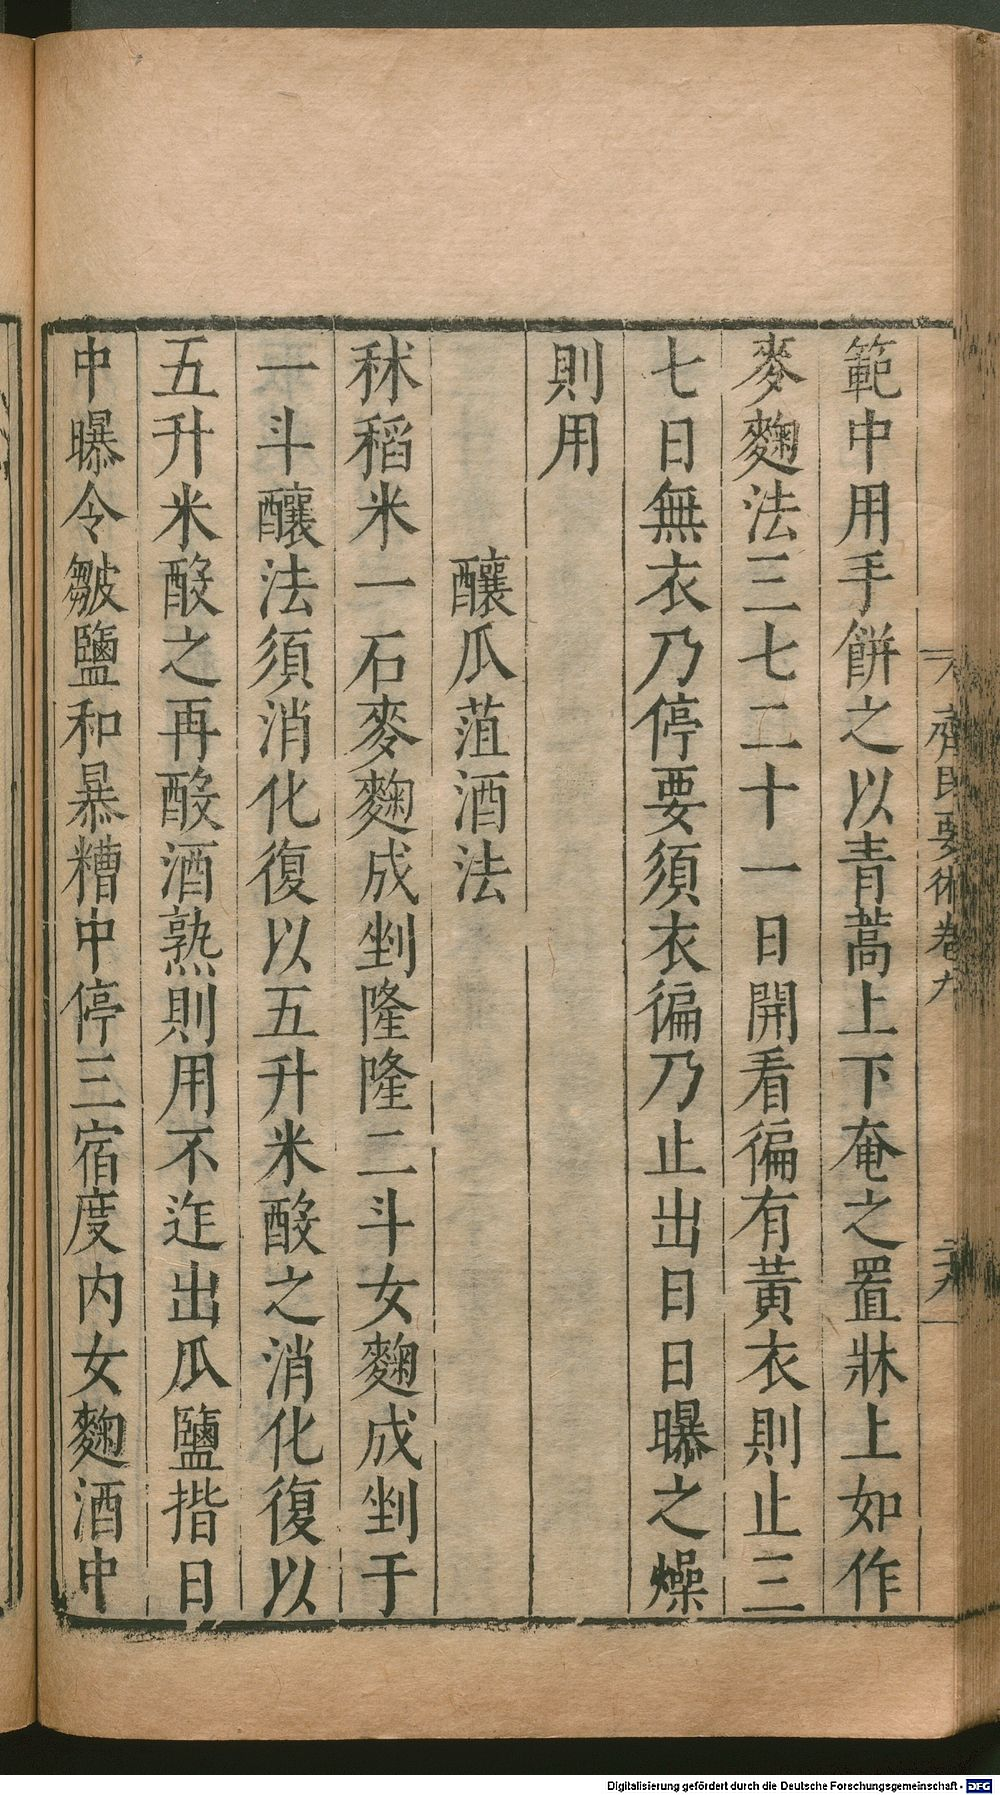 齊民要術卷九
範中用手餅之以青蒿上下奄之置牀上如作
麥麴法三七二十一日開看徧有黃衣則止三
七日無衣乃停要須衣徧乃止出日日曝之燥
則用
釀瓜菹酒法
秫稻米一石麥麴成剉隆隆二斗女麴成剉于
一斗釀法須消化復以五升米酘之消化復以
五升米酘之再酘酒熟則用不迮出瓜鹽揩日
中曝令皺鹽和暴糟中停三宿度内女麴酒中
Digitalisierung gefördert durch die Deutsche Forschungsgemeinschaft - DFG